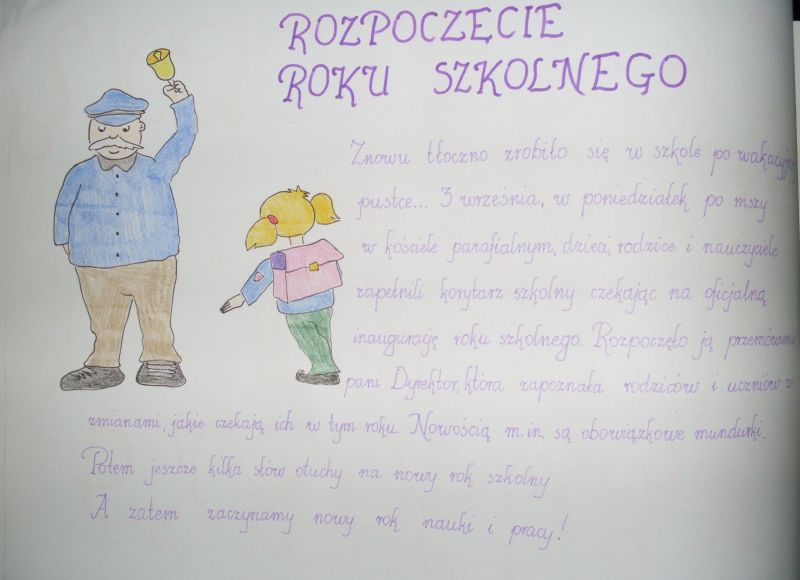 ROZPOCZĘCIE
ROKU SZKOLNEGO
Znowu tłoczno zrobiło się w szkole po wakacyjnej
pustce... 3 września, w poniedziałek po mszy
w kościele parafialnym, dzieci, rodzice i nauczyciele
zapełnili korytarz szkolny czekając na oficjalną
inaugurację roku szkolnego. Rozpoczęło ją przemówienie
pani Dyrektor, która zapoznała rodziców i uczniów ze
zmianami, jakie czekają ich w tym roku. Nowością m.in. są obowiązkowe mundurki.
Potem jeszcze kilka słów otuchy na nowy rok szkolny
A zatem zaczynamy nowy rok nauki i pracy!